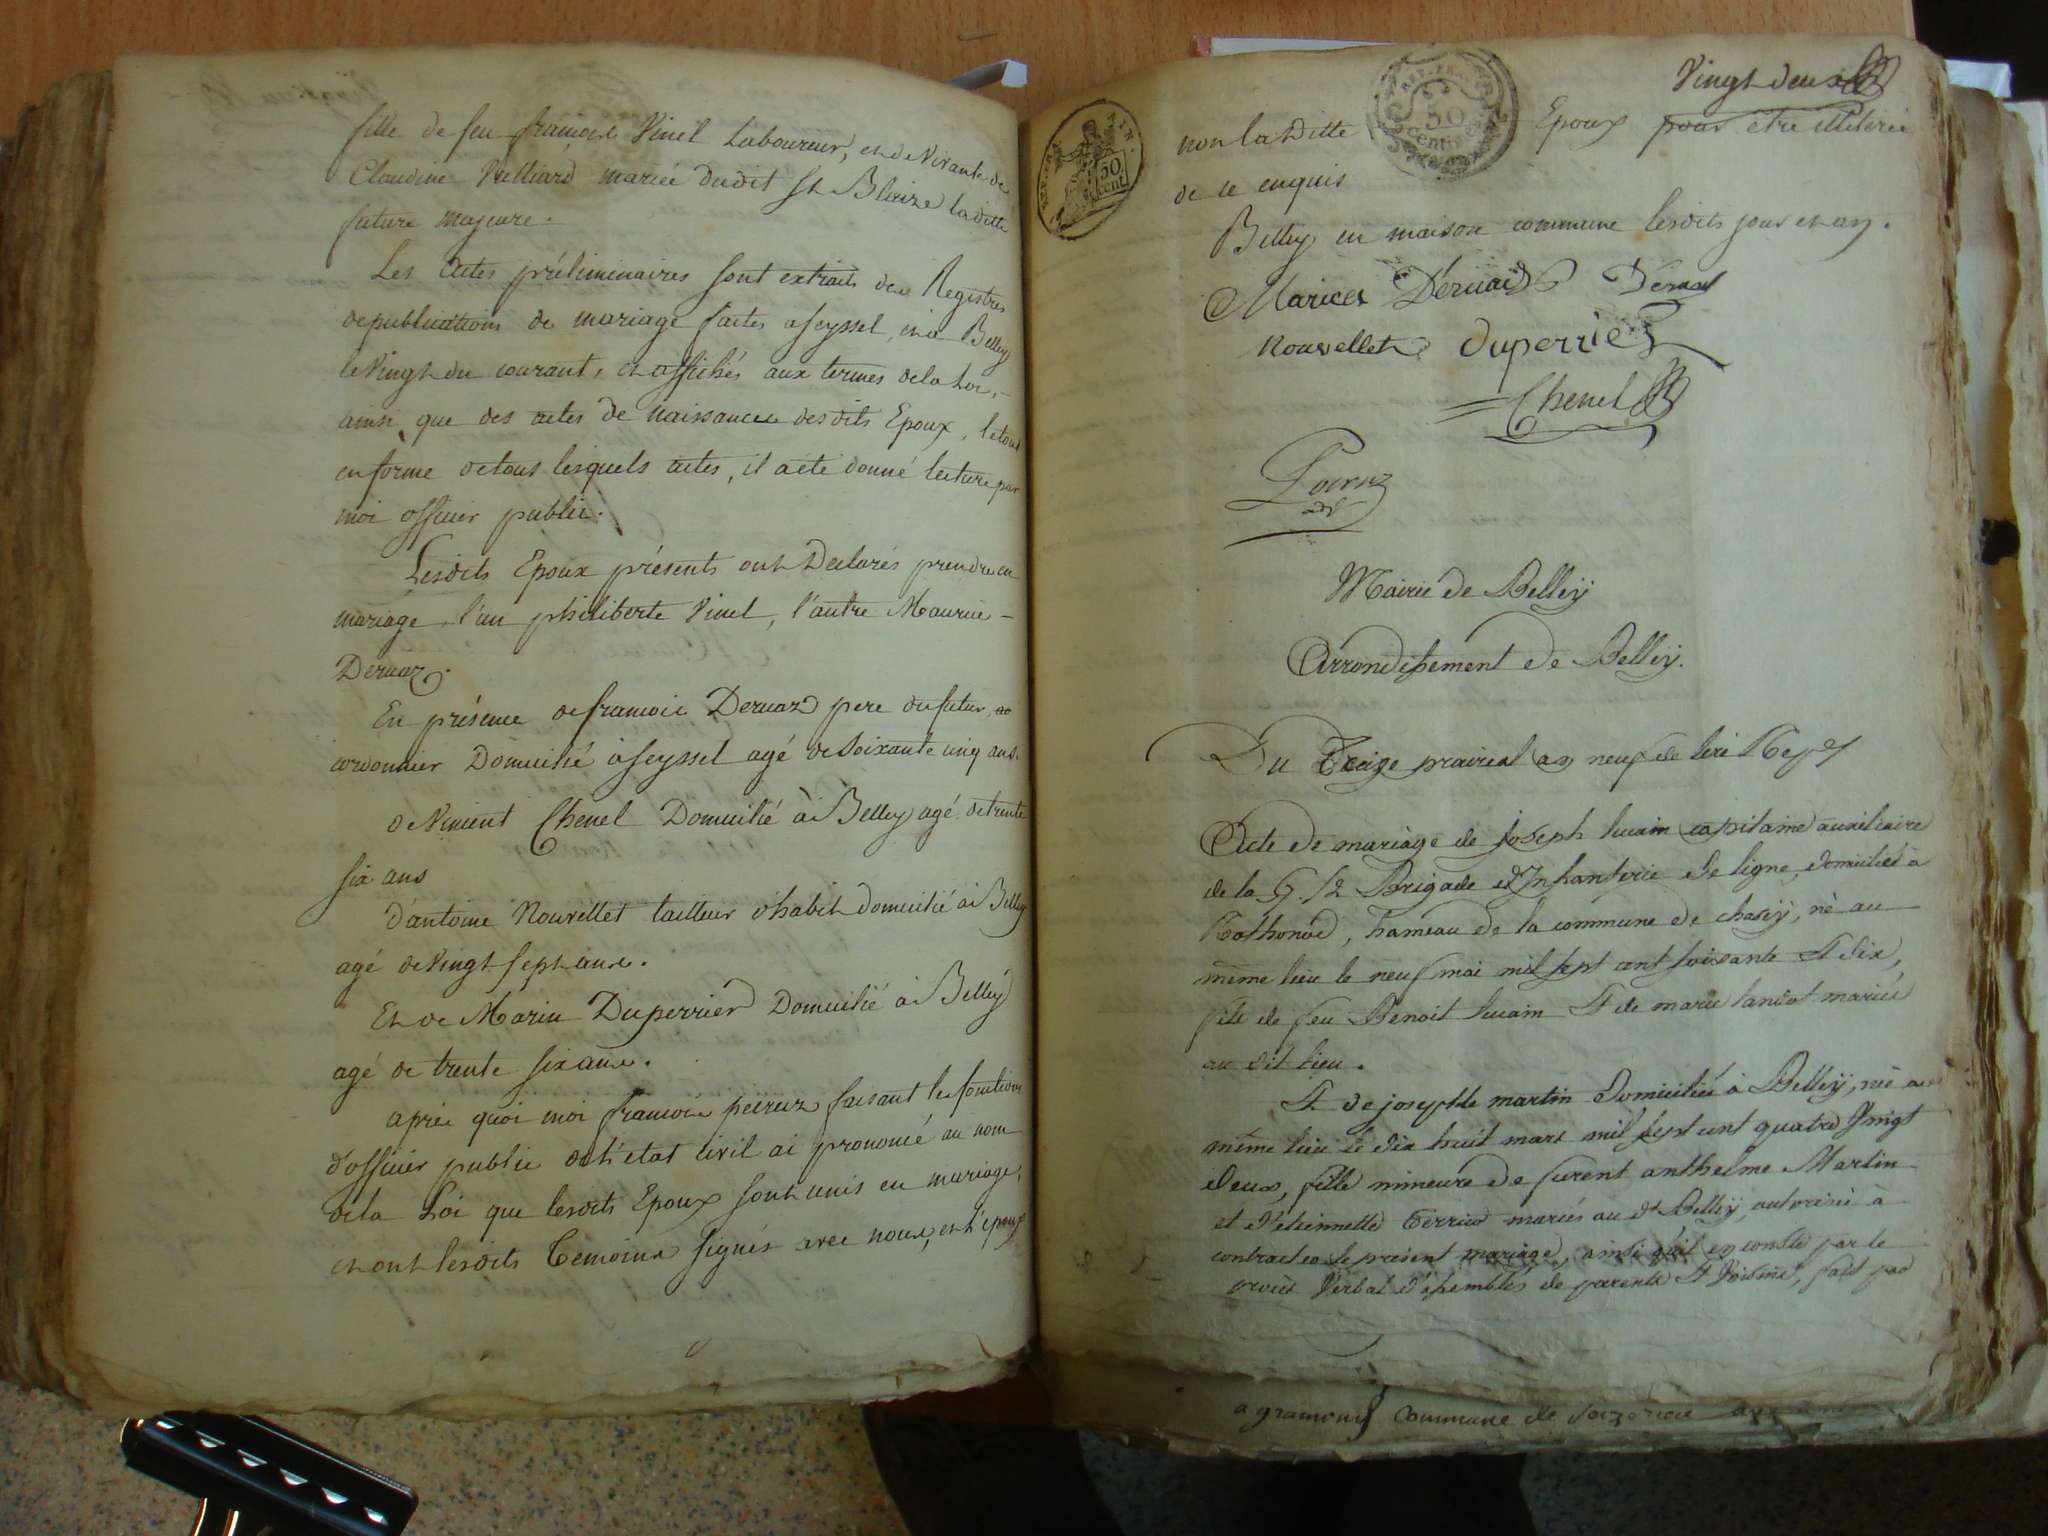 fille de feu françois Vinel Laboureur, et de Vivante de
Claudine Vulliard mariée dudit St Blaize laditte
future majeure.
Les actes préliminaires sont extraits des Registres
de publications de mariage faites a seyssel, et a Belley
le Vingt du courant, et affichés aux termes de la Loi,
ainsi que des actes de naissances desdits Epoux, le tout
en forme de tous lesquels actes, il a été donné lecture par
moi officier public.
Lesdits Epoux présents ont Declarés prendre en
mariage, l'un philiberte Vinel, l'autre Maurice
Deruaz.
En présence de francois Deruaz pere du futur,
cordonnier Domicilié à seyssel agé de Soixante cinq ans.
de Vincent Chenel Domicilié à Belley agé de trente
six ans
d'antoine Nouvellet tailleur d'habit domicilié à Belley
agé de Vingt sept ans.
Et de Marin Duperrier Domicilié à Belley
agé de trente six ans.
après quoi moi francois peirruz faisant les fonctions
d'officier public de l'état civil ai prononcé au nom
de la Loi que lesdits Epoux sont unis en mariage,
et ont lesdits Temoins signés avec nous, et l'epoux
Vingt deux
non laditte Epoux pour être illiteree
de ce enquis
Belley en maison commune lesdits jour et an.
REP. FRA. 50 centimes
50 cent
Maricex Déruaid Déruaz
Nouvellet duperrier
Chenel
Mairie de Belleÿ
Arrondissement de Belleÿ.
Du Treize prairial an neuf de l'ere Rep.
Acte de mariage de joseph lucain capitaine auxiliaire
de la 5 1/2 Brigade d'Infanterie de ligne, domicilié à
Rothonod, hameau de la commune de chaseÿ, né au
même lieu le neuf mai mil sept cent soixante & dix,
fils de feu Benoit lucain & de marie tandot mariés
au dit lieu.
& de josephte martin domiciliée à Belleÿ, née au
même lieu le dix huit mars mil sept cent quatre Vingt
deux, fille mineure de furent anthelme Martin
et d'etiennette Terrier mariés au dt Belleÿ, autorisée à
contracter le présent mariage, ainsi qu'il en conste par le
procès Verbal d'assemblés de parents & Voisins, fait par
a gramont commune de